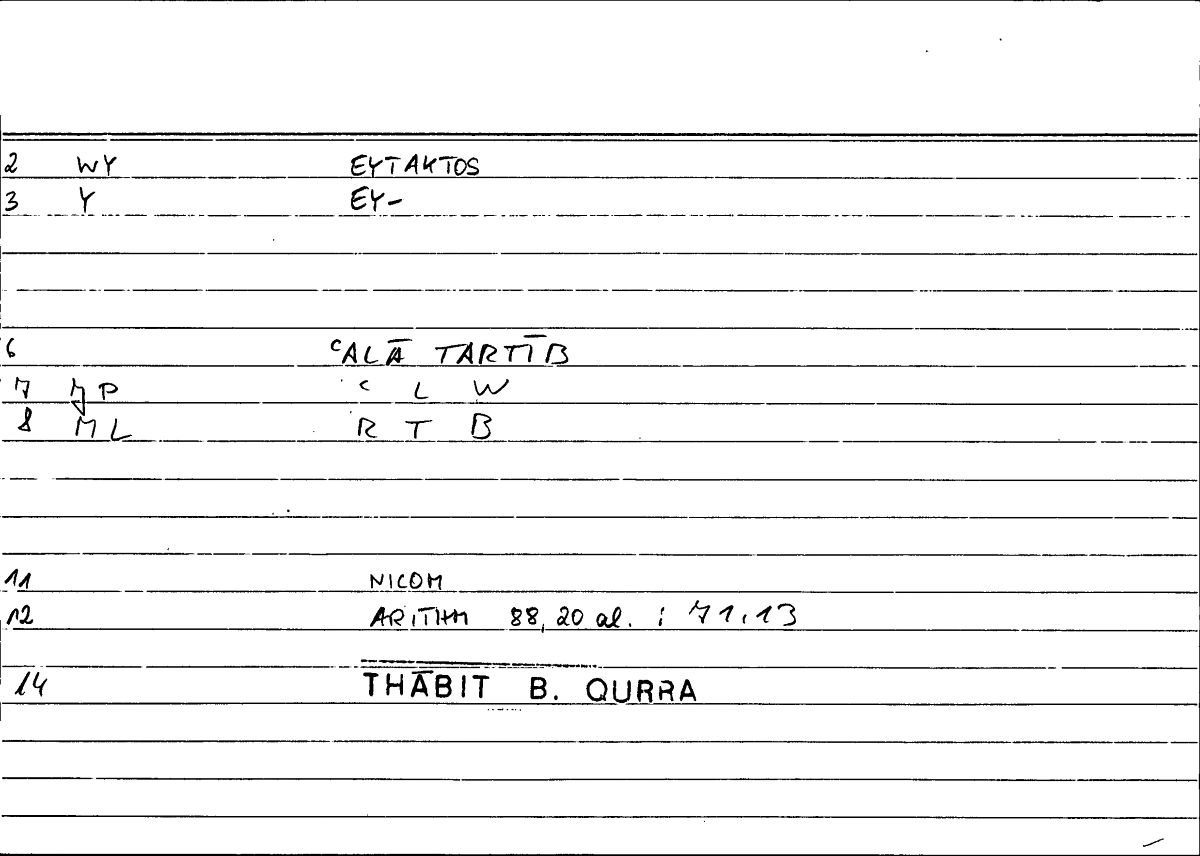 2 WY EYTAKTOS
3 Y EY-
6 ʿALĀ TARTĪB
7 ʿ L W
8 ML R T B
11 NICOM
12 ARITHM 88,20 al. : 71.13
14 THĀBIT B. QURRA